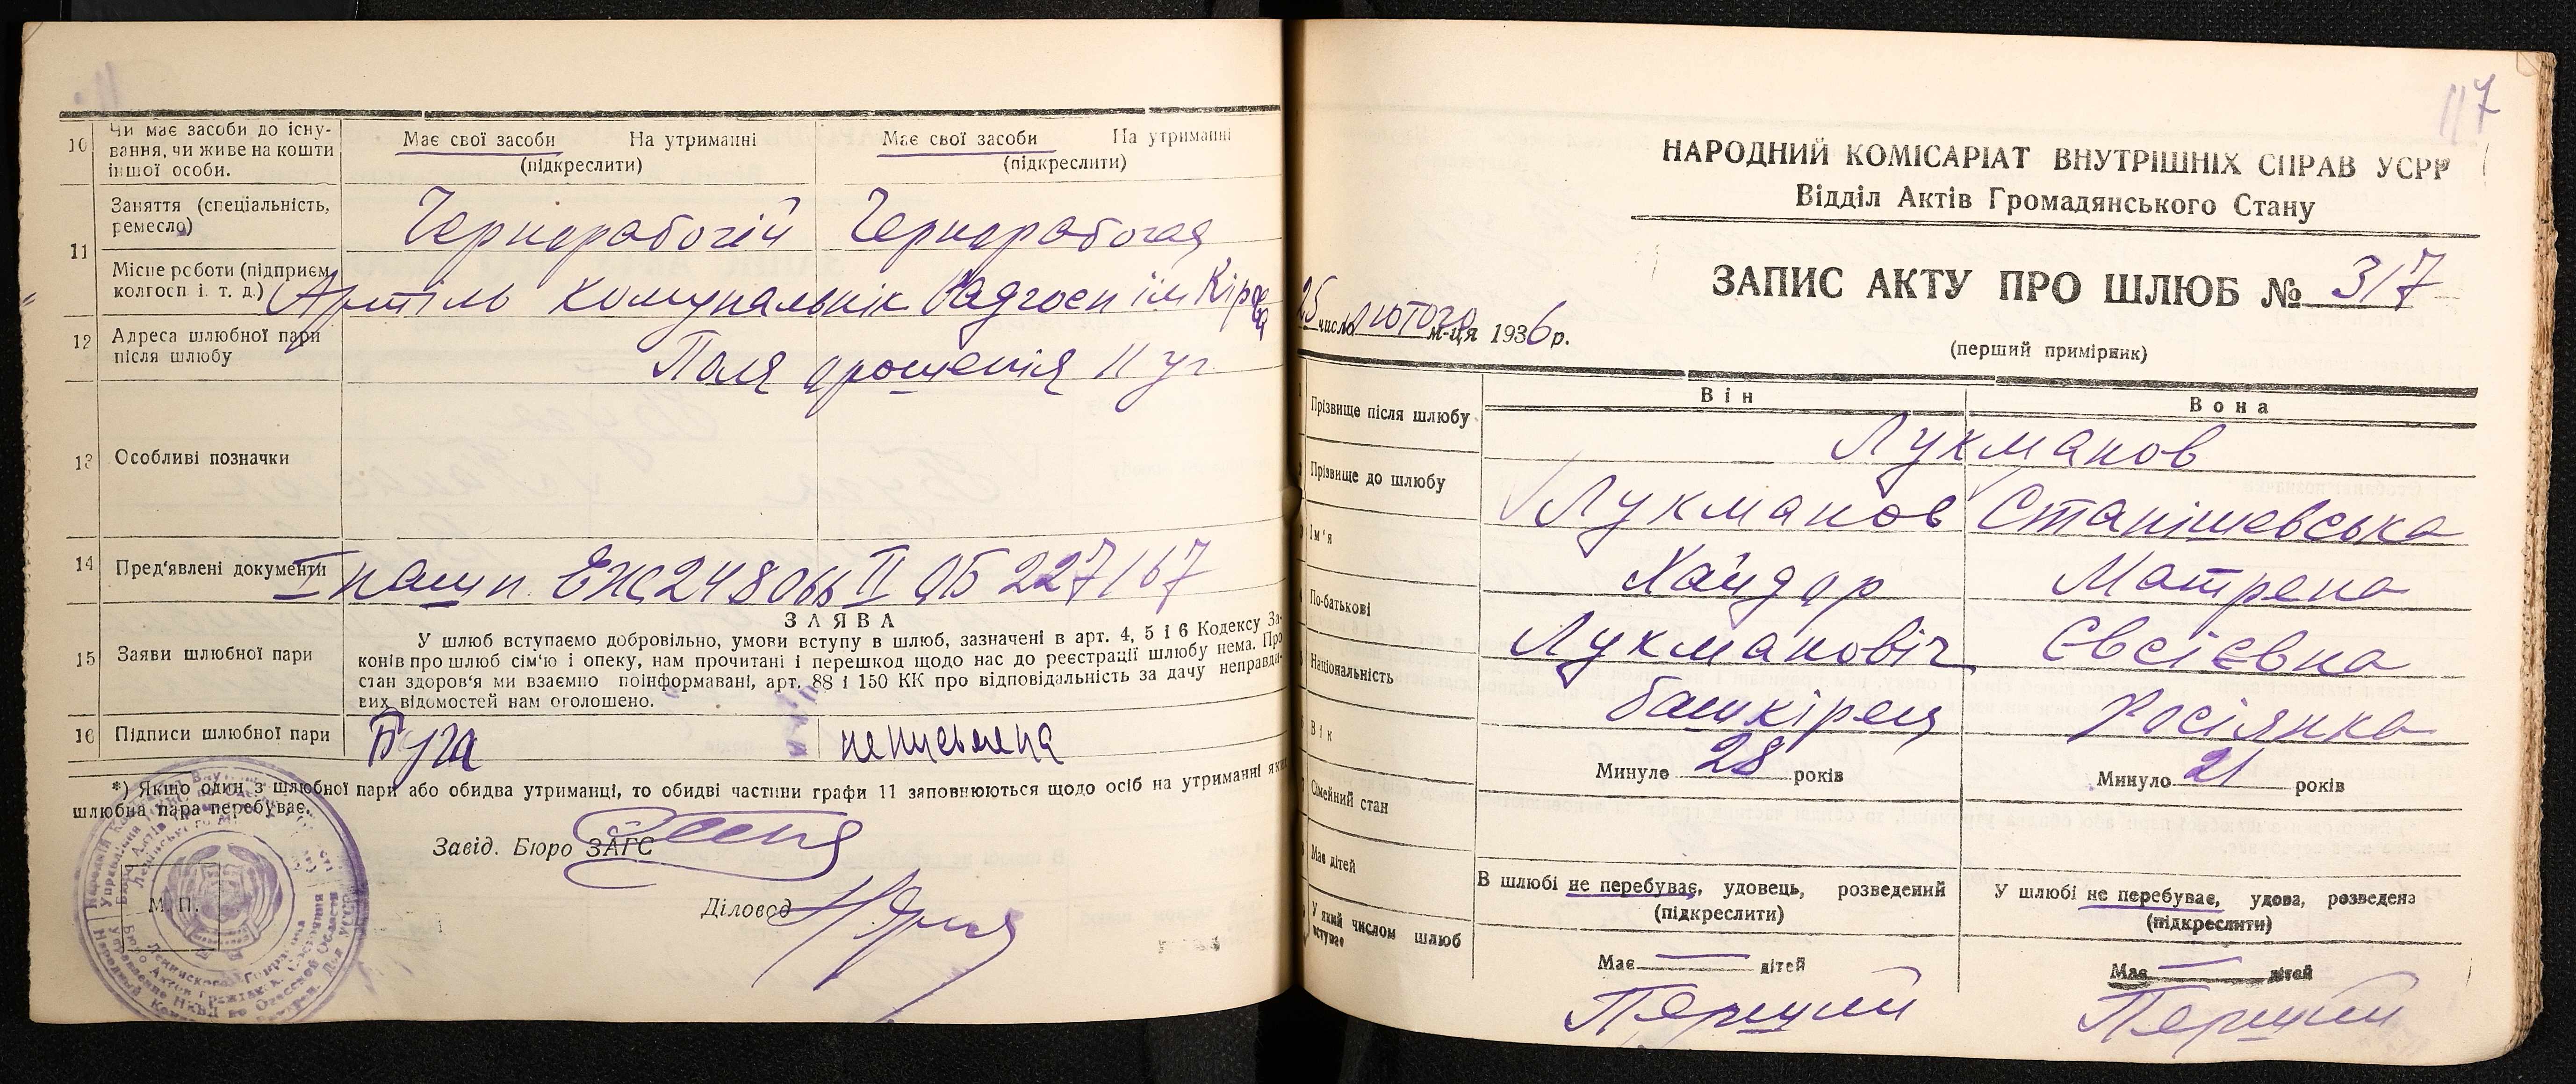 10 Чи має засоби до існу-
вання, чи живе на кошти
іншої особи.
Має свої засоби На утриманні
(підкреслити)
Має свої засоби На утриманні
(підкреслити)
11 Заняття (спеціальність,
ремесло)
Чернорабочій Чернорабочая
Місце роботи (підприєм
колгосп і. т. д.) Артіль комунальнік Радгосп ім Кірова
12 Адреса шлюбної пари
після шлюбу
Поля орошенія 11 уг
13 Особливі позначки
14 Пред'явлені документи I пашп. ЕЖ 248066 II ОБ 227167
ЗАЯВА
15 Заяви шлюбної пари
У шлюб вступаємо добровільно, умови вступу в шлюб, зазначені в арт. 4, 5 і 6 Кодексу За-
конів про шлюб сім'ю і опеку, нам прочитані і перешкод щодо нас до реєстрації шлюбу нема. Про
стан здоров'я ми взаємно поінформавані, арт. 88 і 150 КК про відповідальність за дачу неправди-
вих відомостей нам оголошено.
16 Підписи шлюбної пари
*) Якщо один з шлюбної пари або обидва утриманці, то обидві частини графи 11 заповнюються щодо осіб на утриманні яких
шлюбна пара перебуває.
Завід. Бюро ЗАГС
Діловод
М. П.
117
НАРОДНИЙ КОМІСАРІАТ ВНУТРІШНІХ СПРАВ УСРР
Відділ Актів Громадянського Стану
ЗАПИС АКТУ ПРО ШЛЮБ № 317
25 число лютого м-ця 1936 р.
(перший примірник)
Він Вона
Прізвище після шлюбу Лукманов
Прізвище до шлюбу Лукманов Станішевська
Ім'я Хайдар Матрена
По-батькові Лукмановіч Євсієвна
Національність башкірец Росіянка
Вік Минуло 28 років Минуло 21 років
Сімейний стан
В шлюбі не перебуває, удовець, розведений
(підкреслити)
У шлюбі не перебуває, удова, розведена
(підкреслити)
Має дітей Має — дітей Має — дітей
У який числом шлюб
вступає
Перший Перший